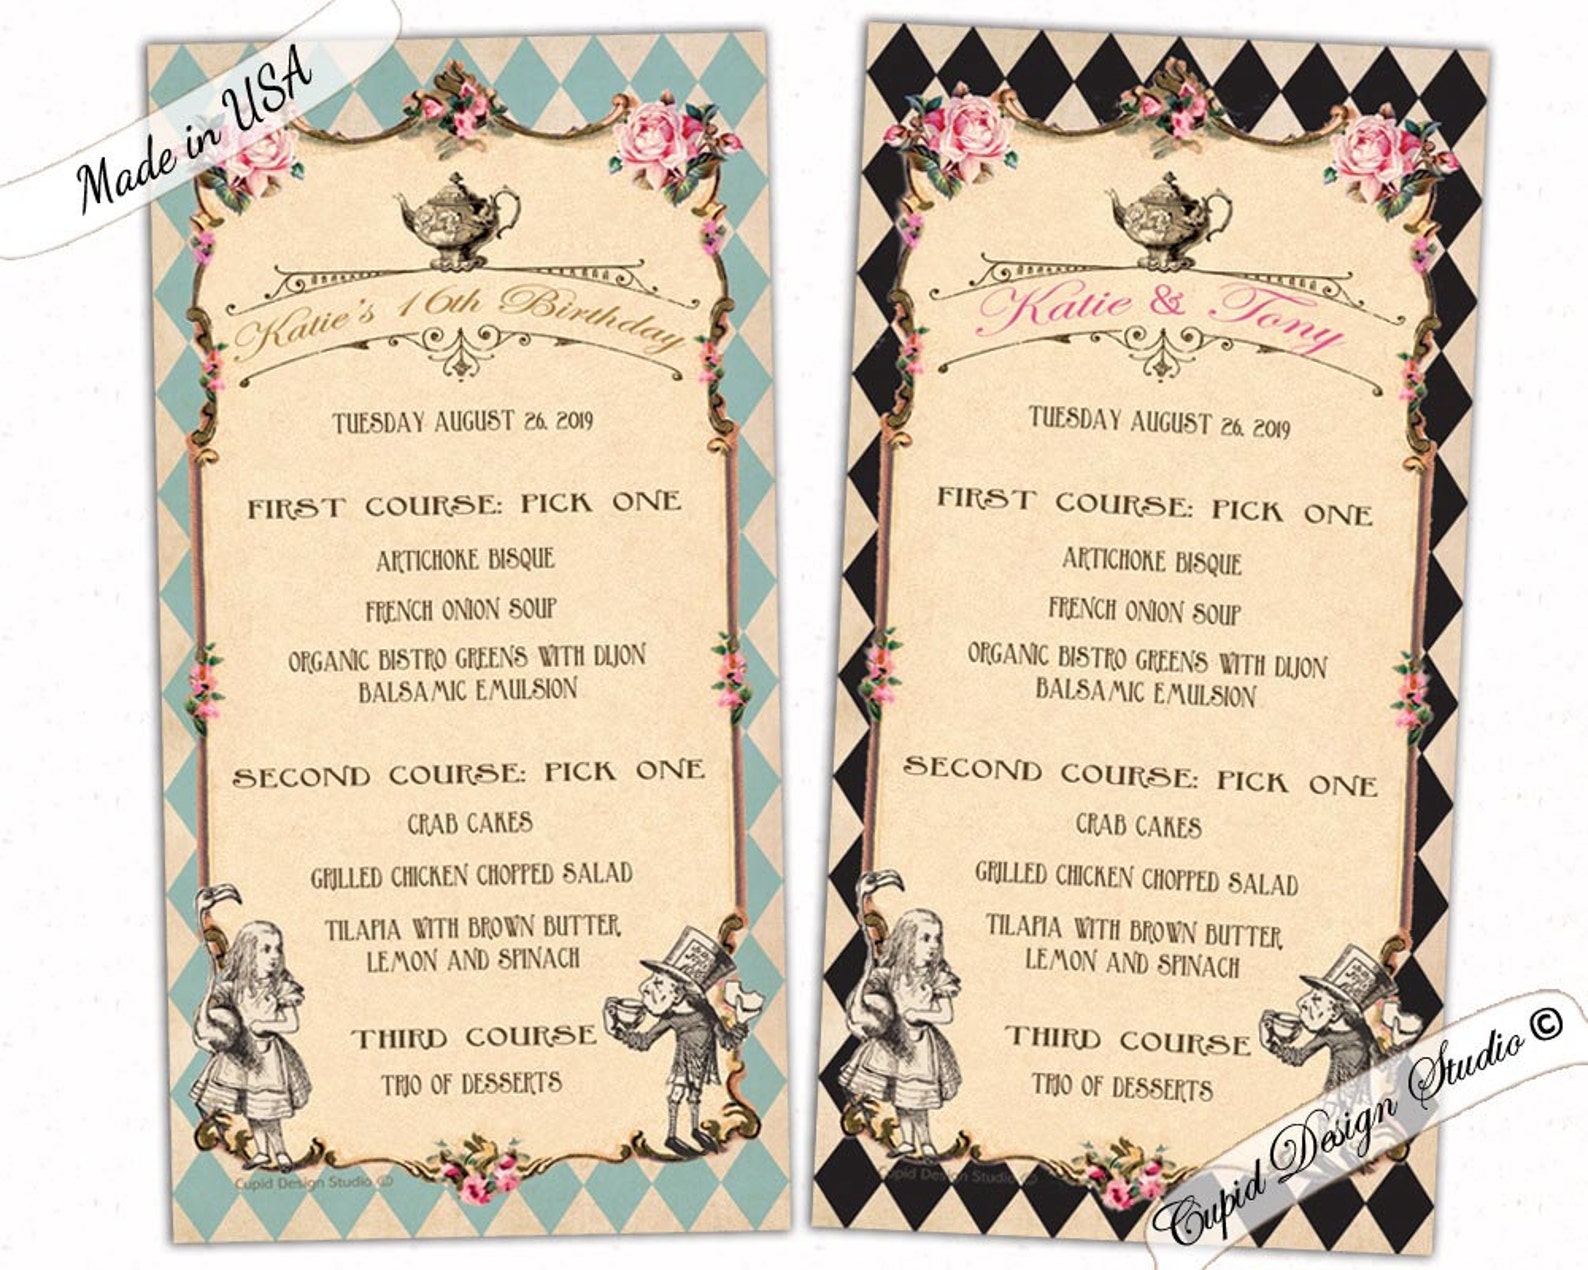 Made in USA
Katie's 16th Birthday
TUESDAY AUGUST 26, 2019
FIRST COURSE: PICK ONE
ARTICHOKE BISQUE
FRENCH ONION SOUP
ORGANIC BISTRO GREENS WITH DIJON
BALSAMIC EMULSION
SECOND COURSE: PICK ONE
CRAB CAKES
GRILLED CHICKEN CHOPPED SALAD
TILAPIA WITH BROWN BUTTER,
LEMON AND SPINACH
THIRD COURSE
TRIO OF DESSERTS
Cupid Design Studio ©
Katie & Tony
TUESDAY AUGUST 26, 2019
FIRST COURSE: PICK ONE
ARTICHOKE BISQUE
FRENCH ONION SOUP
ORGANIC BISTRO GREENS WITH DIJON
BALSAMIC EMULSION
SECOND COURSE: PICK ONE
CRAB CAKES
GRILLED CHICKEN CHOPPED SALAD
TILAPIA WITH BROWN BUTTER,
LEMON AND SPINACH
THIRD COURSE
TRIO OF DESSERTS
Cupid Design Studio ©
Cupid Design Studio ©